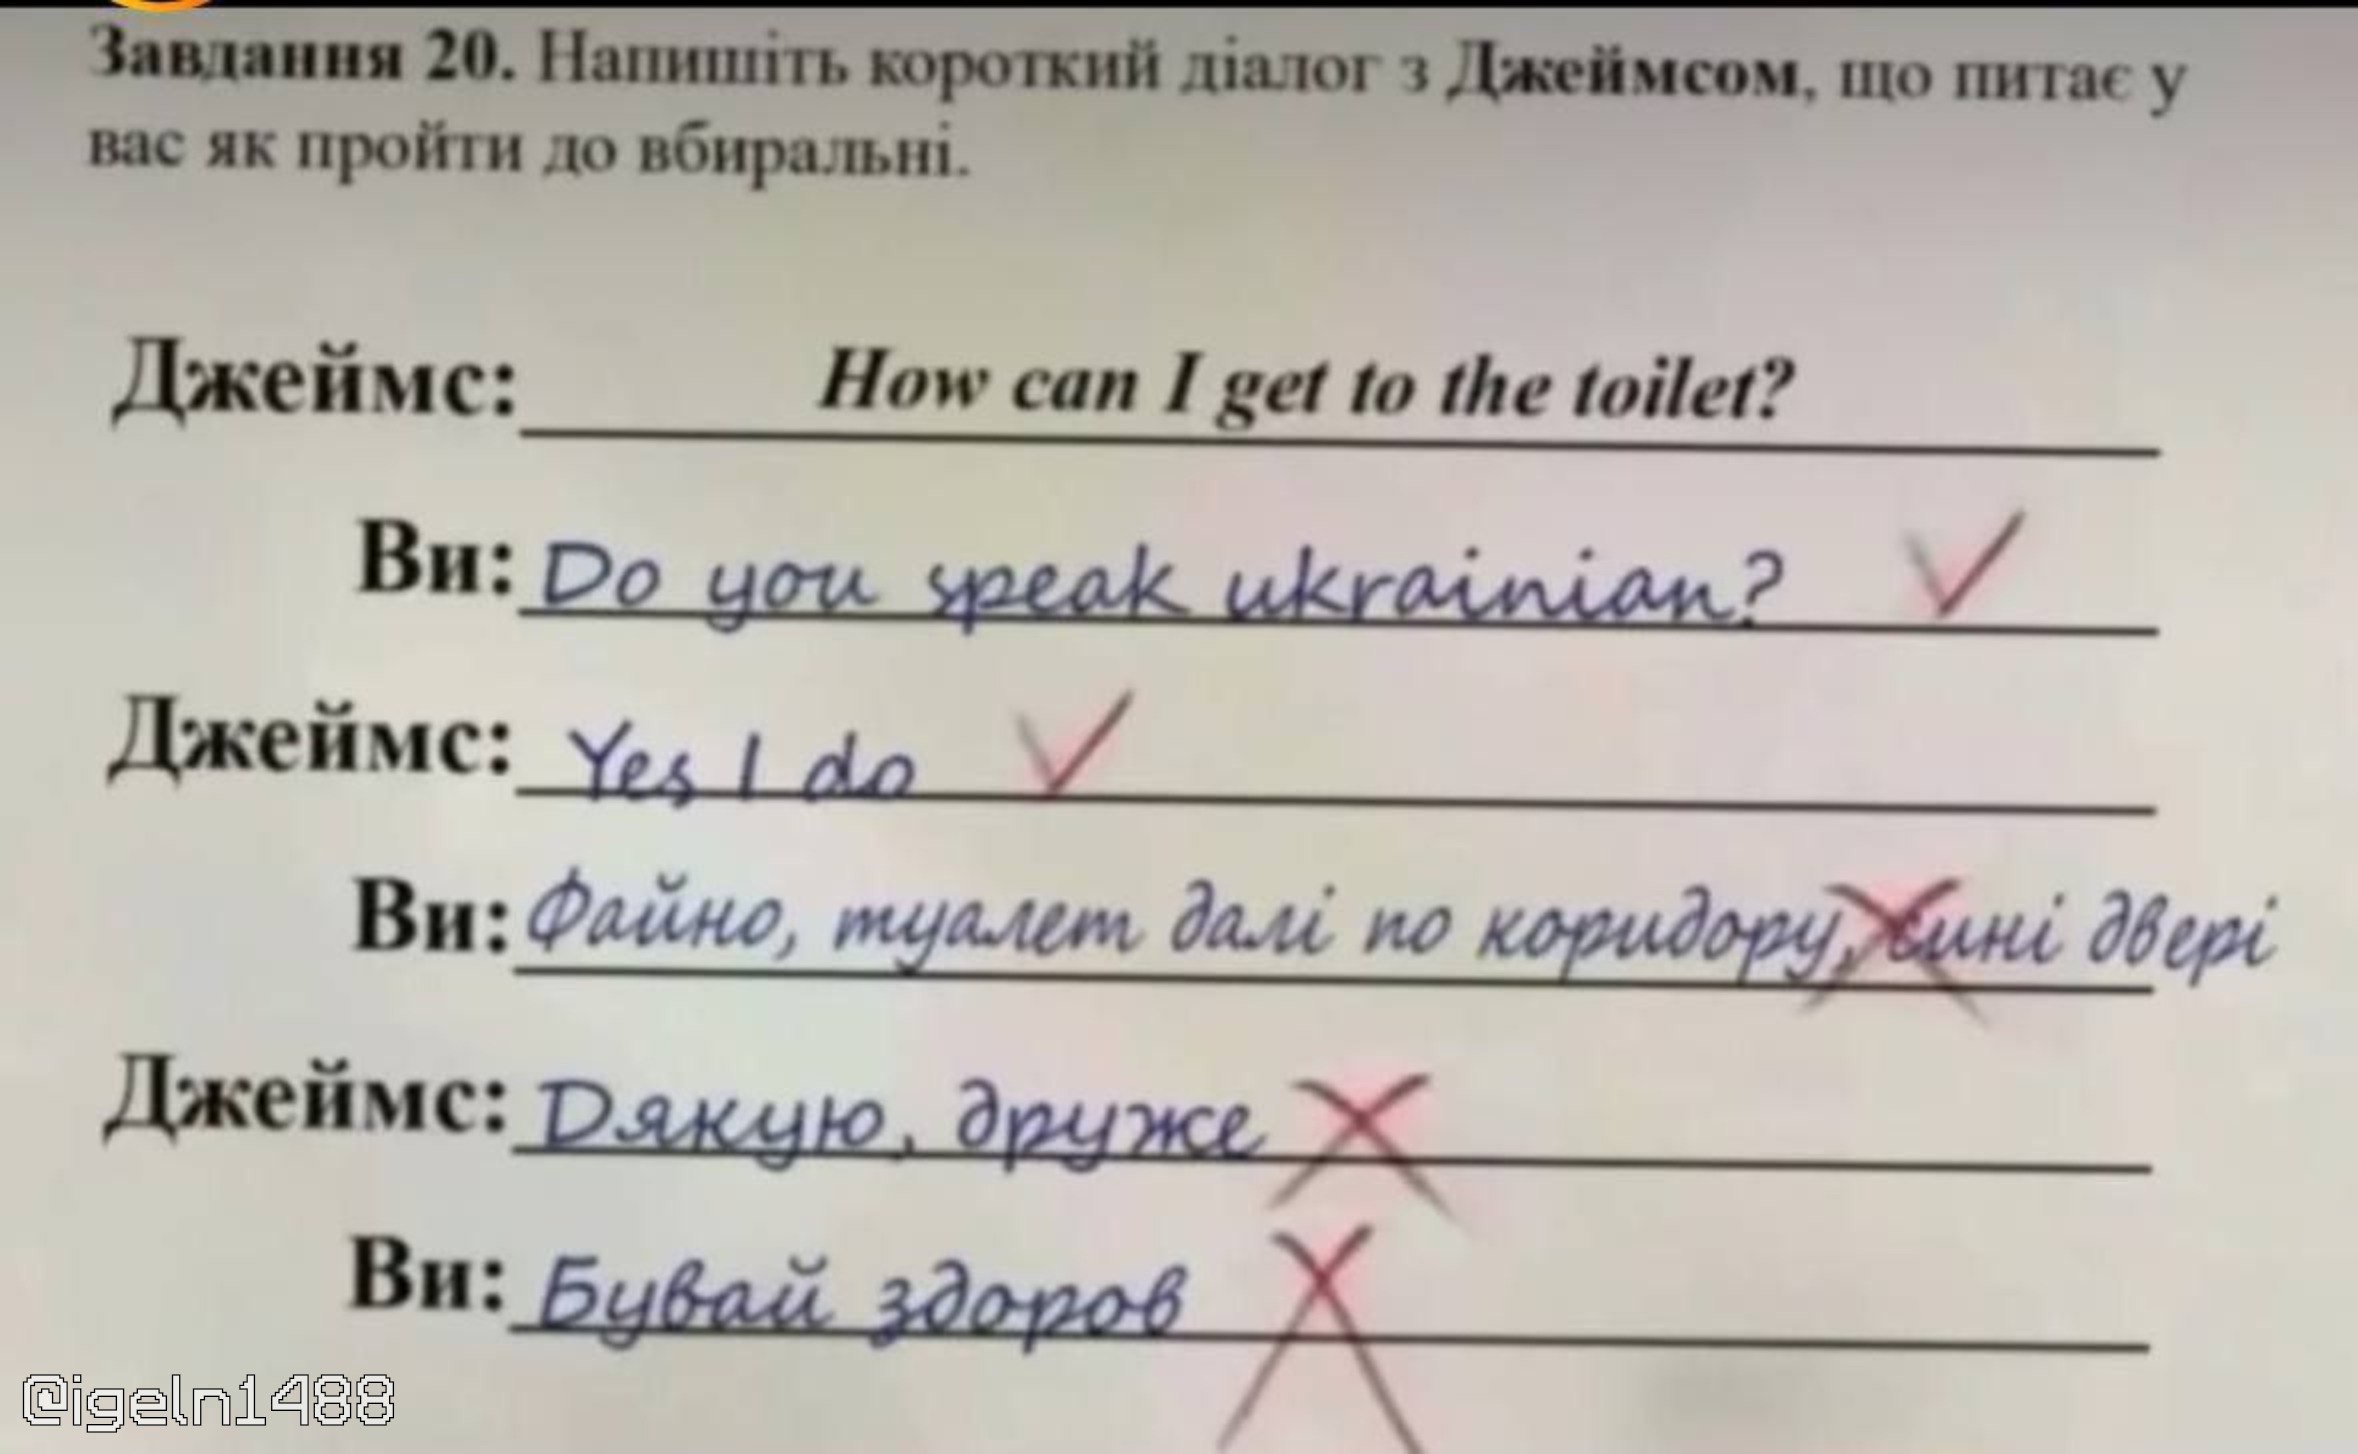 Завдання 20. Напишіть короткий діалог з Джеймсом, що питає у
вас як пройти до вбиральні.
Джеймс: How can I get to the toilet?
Ви: Do you speak ukrainian?
Джеймс: Yes I do
Ви: Файно, туалет далі по коридору, сині двері
Джеймс: Dякую, друже
Ви: Бувай здоров
@igeln1488